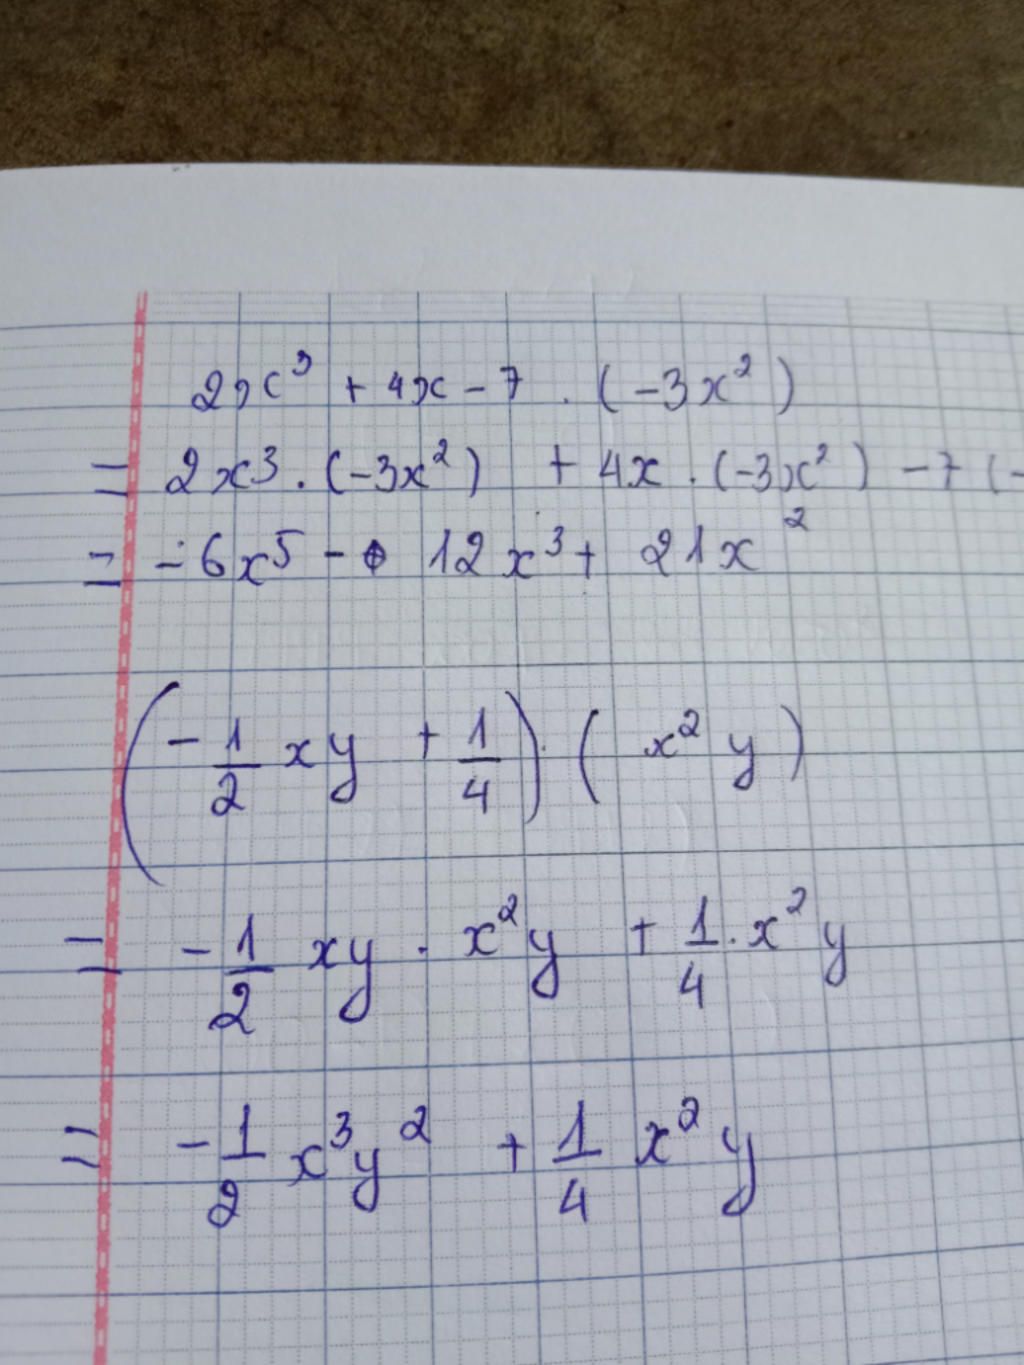 2x³ + 4x - 7 . (-3x²)
= 2x³ . (-3x²) + 4x . (-3x²) - 7 (-
= -6x⁵ - 12x³ + 21x²
(-1/2 xy + 1/4) . (x² y)
= -1/2 xy . x²y + 1/4 . x² y
= -1/2 x³y² + 1/4 x² y